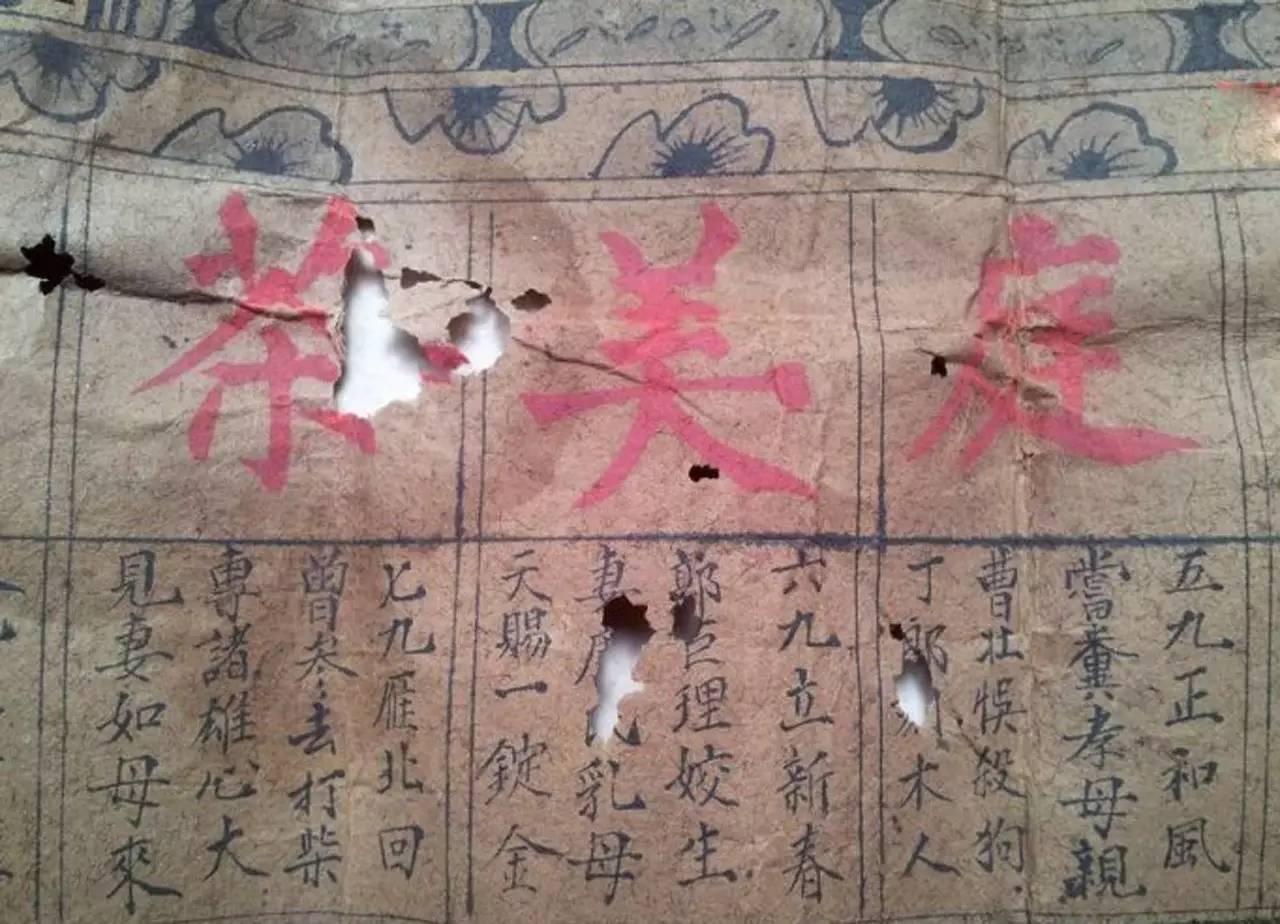 庭美茶
五九正和風
嘗糞孝母親
曹壮悞殺狗
丁郎木人
六九立新春
郭巨理姣生
妻氏乳母
天賜一錠金
七九雁北回
曾参去打柴
專諸雄心大
見妻如母來